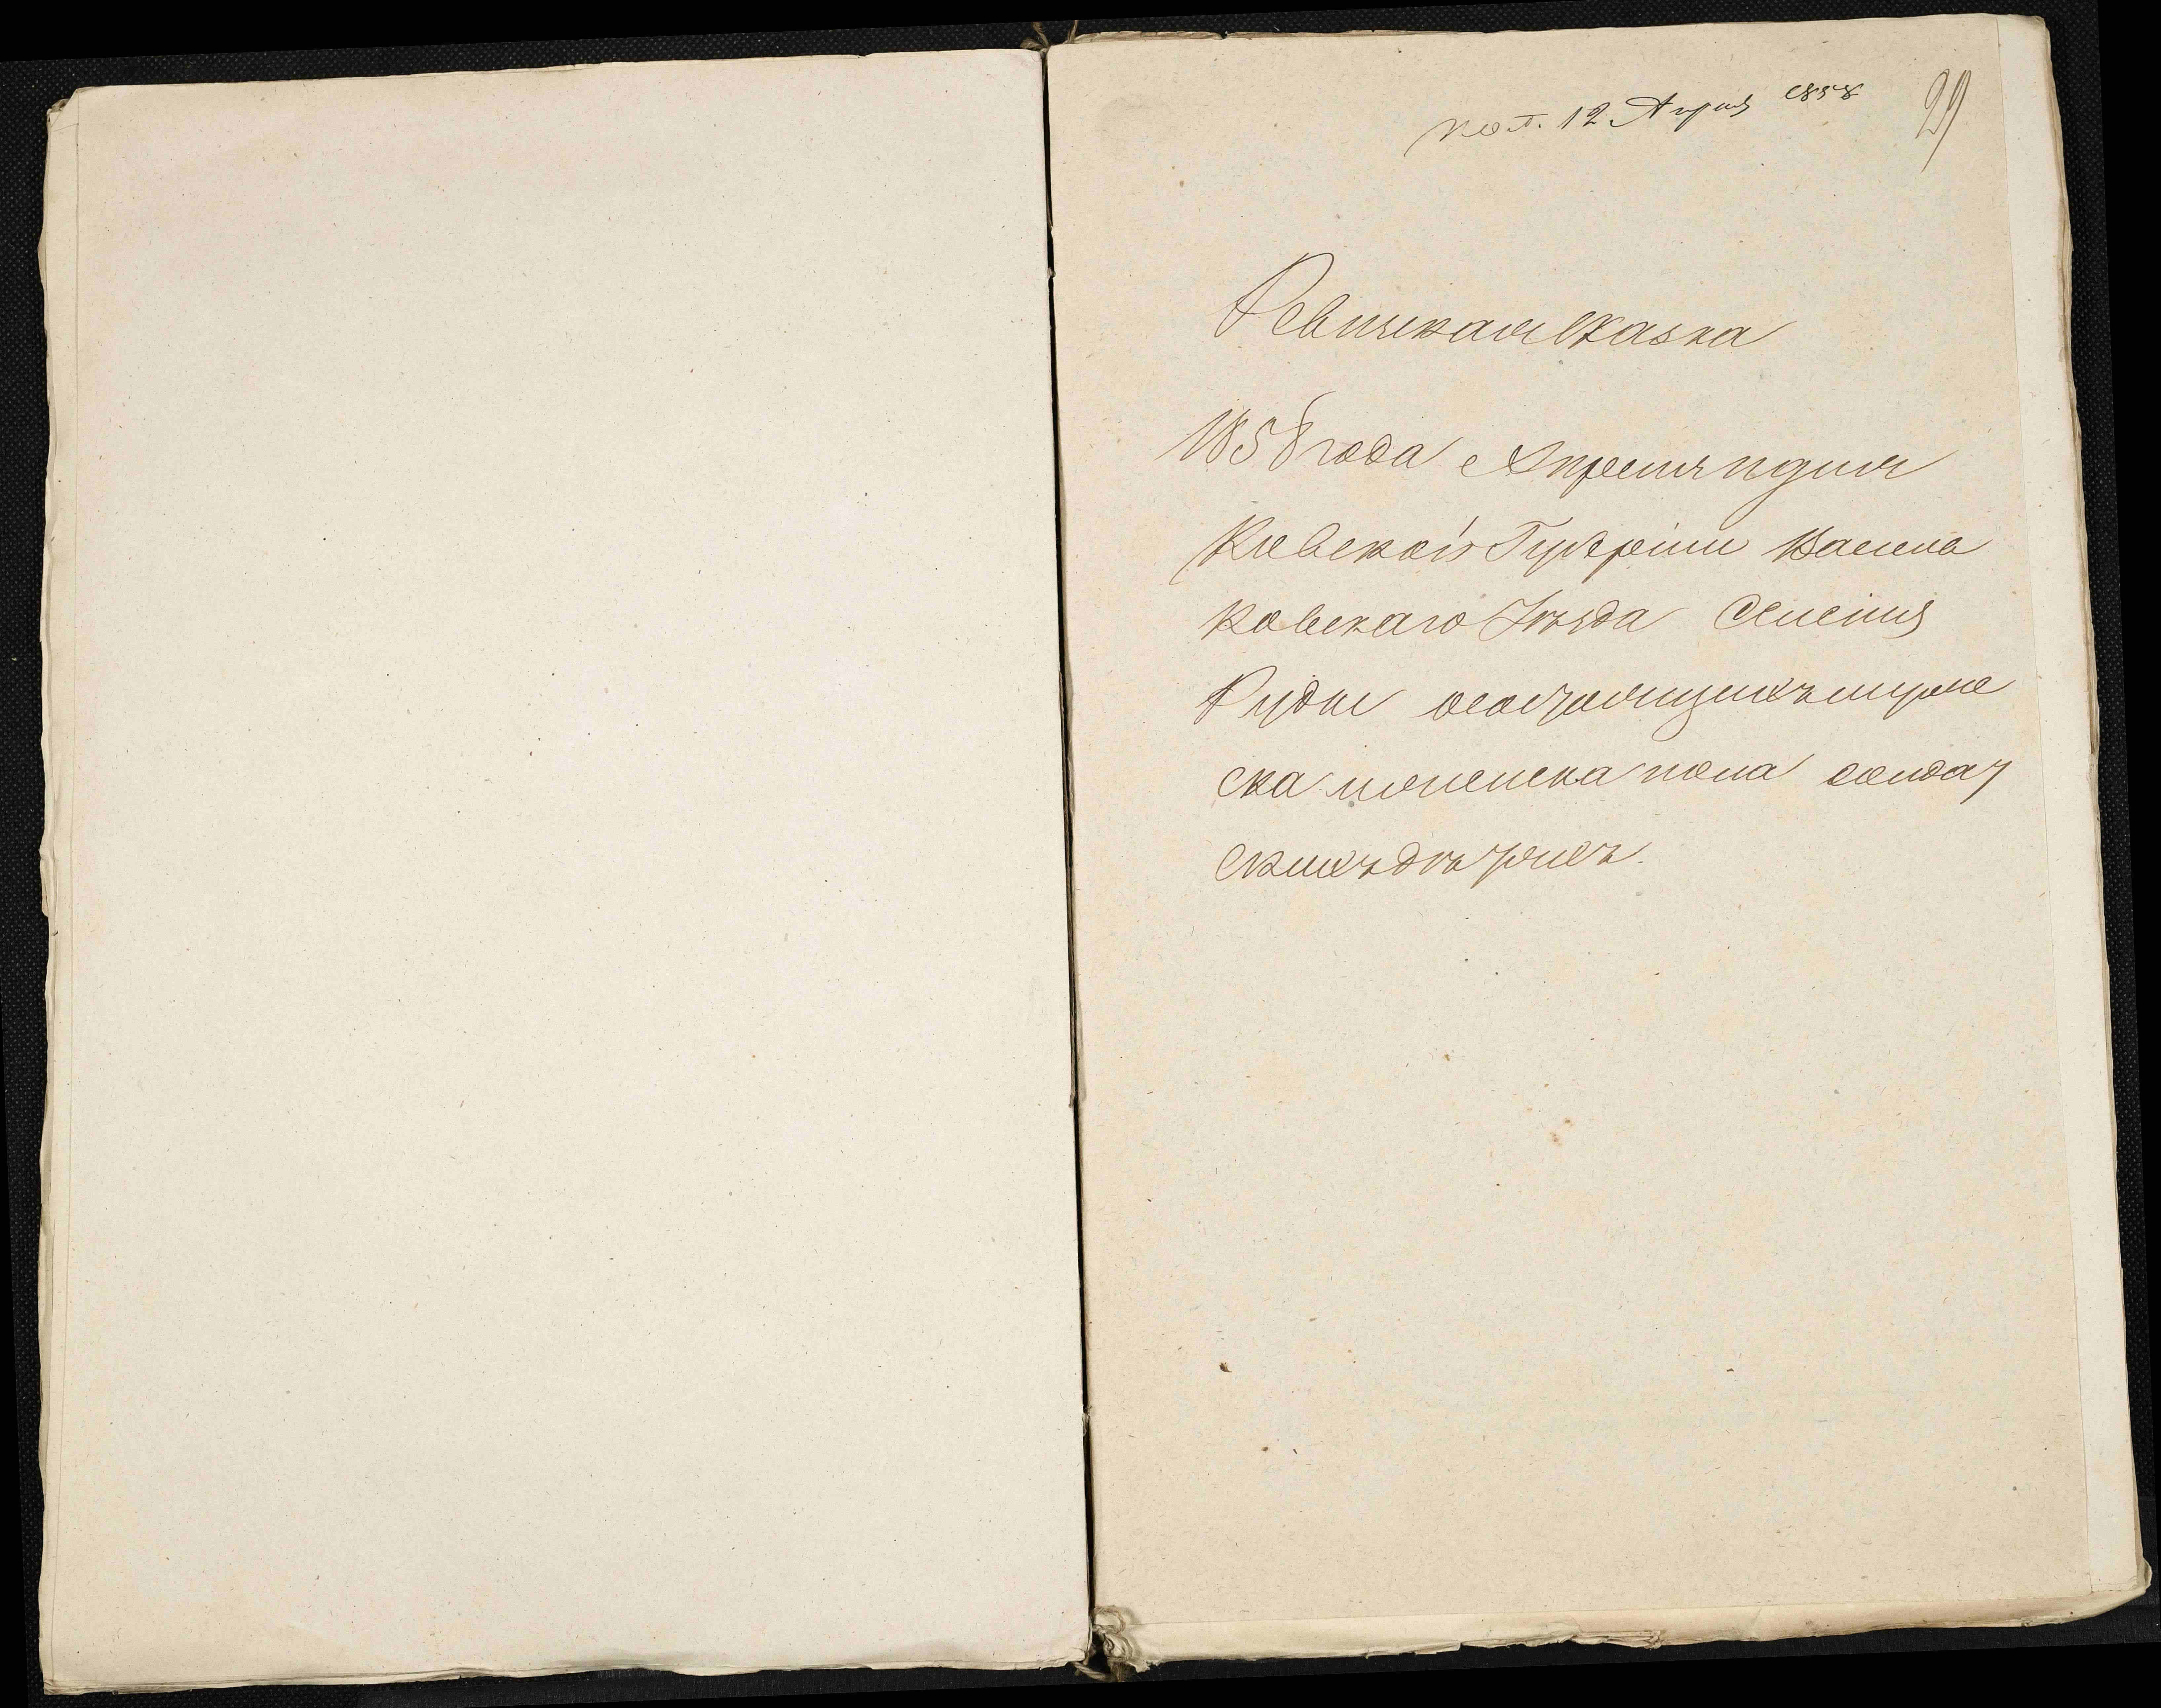 пол. 12 Апреля 1858
29
Ревизкая Сказка
1858 года Апреля дня
Киевской Губерніи Василь
ковскаго Уѣзда Селенія
Рудки о состоящихъ мужес
ска и женска пола солдат
скихъ дѣтяхъ.